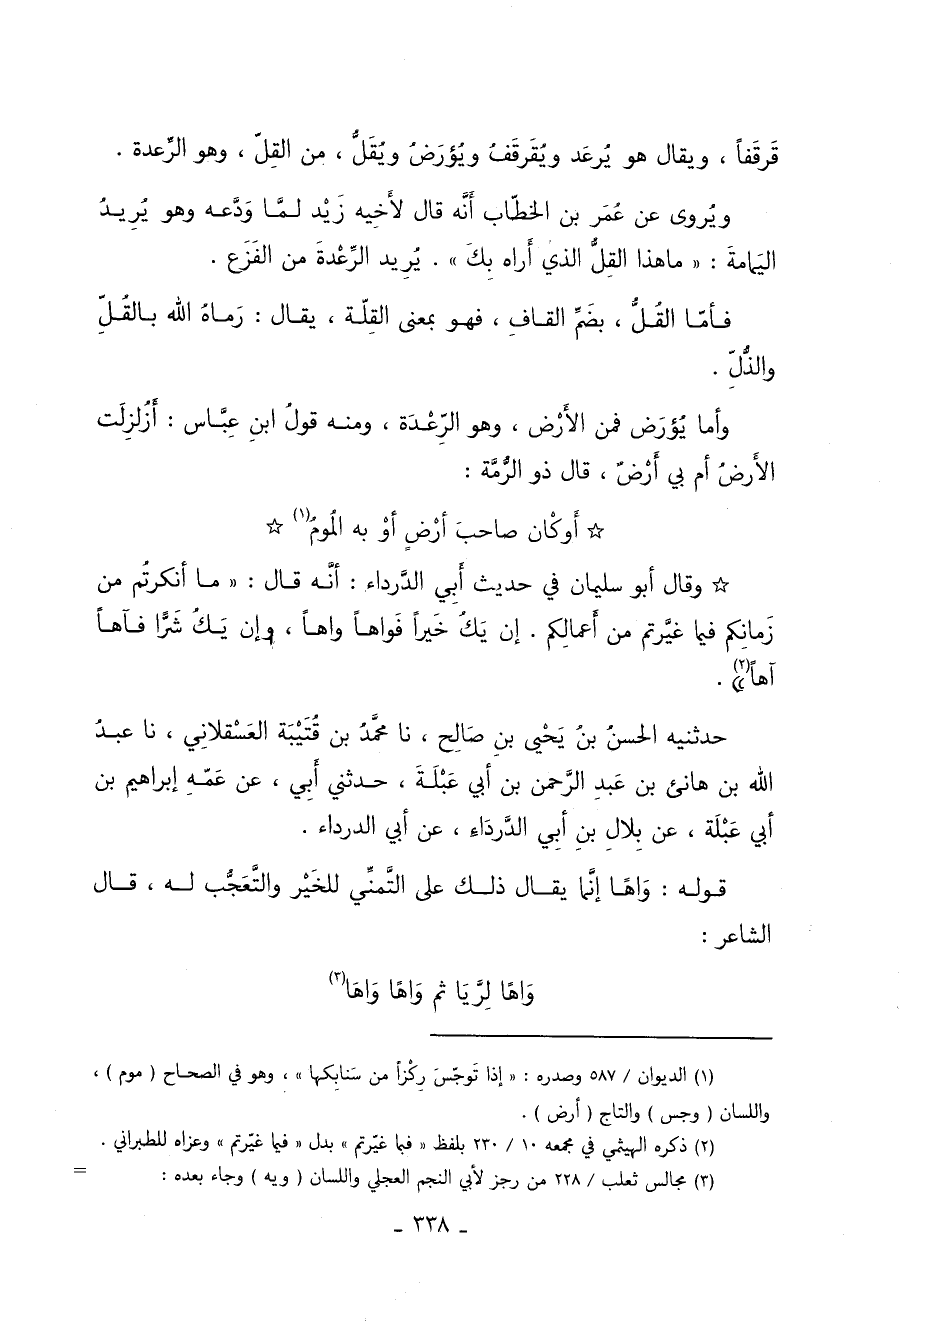 قَرقَفاً ، ويقال هو يُرعَد ويُقَرقَفُ ويُؤرَضُ ويُقَلُّ ، من القِلّ ، وهو الرِّعدة .
ويُروى عن عُمَر بن الخطّاب أَنَّه قال لأَخيه زَيْد لـمَّا وَدَّعـه وهو يُريـدُ
اليَمامةَ : « ماهذا القِلُّ الذي أَراه بِكَ » . يُريد الرِّعْدةَ من الفَزَع .
فـأمّـا القُـلُّ ، بضَمِّ القـاف ، فهـو بمعنى القِلّة ، يقـال : رَمـاهُ الله بـالقُـلِّ
والذُّلِّ .
وأما يُؤرَض فمن الأَرْض ، وهو الرِّعْـدَة ، ومنـه قولُ ابنِ عبَّـاس : أَزُلزِلَت
الأَرضُ أم بي أَرْضٌ ، قال ذو الرُّمَّة :
☆ أَوكْان صاحبَ أرْضٍ أوْ به المُومُ(١) ☆
☆ وقال أبو سليمان في حديث أَبي الدَّرداء : أنَّـه قـال : « مـا أنكرتُم من
زَمانِكم فيما غيَّرتم من أَعمالِكم . إن يَكُ خَيراً فَواهـاً واهـاً ، وإن يَـكُ شَرًّا فـآهـاً
آهاً(٢)» .
حدثنيه الحسنُ بنُ يَحْيى بنِ صَالِح ، نا محمَّدُ بن قُتَيْبَة العَسْقلاني ، نا عبـدُ
الله بن هانئ بن عَبدِ الرَّحمن بن أبي عَبْلَةَ ، حـدثني أَبي ، عن عَمّـه إبراهيم بن
أبي عَبْلَة ، عن بِلالِ بن أبي الدَّردَاءِ ، عن أبي الدرداء .
قـولـه : وَاهًـا إنَّما يقـال ذلـك على التَّمنِّي للخَيْر والتَّعجُّب لـه ، قـال
الشاعر :
وَاهًا لِرَّيَا ثم وَاهًا وَاهَا(٣)
(١) الديوان / ٥٨٧ وصدره : « إذا تَوجّسَ رِكْزاً من سَنابِكها » ، وهو في الصحـاح ( موم ) ،
واللسان ( وجس ) والتاج ( أرض ) .
(٢) ذكره الهيثمي في مجمعه ١٠ / ٢٣٠ بلفظ « فبما غيّرتم » بدل « فيما غيّرتم » وعزاه للطبراني .
(٣) مجالس ثعلب / ٢٢٨ من رجز لأبي النجم العجلي واللسان ( ويه ) وجاء بعده : =
ـ ٣٣٨ ـ